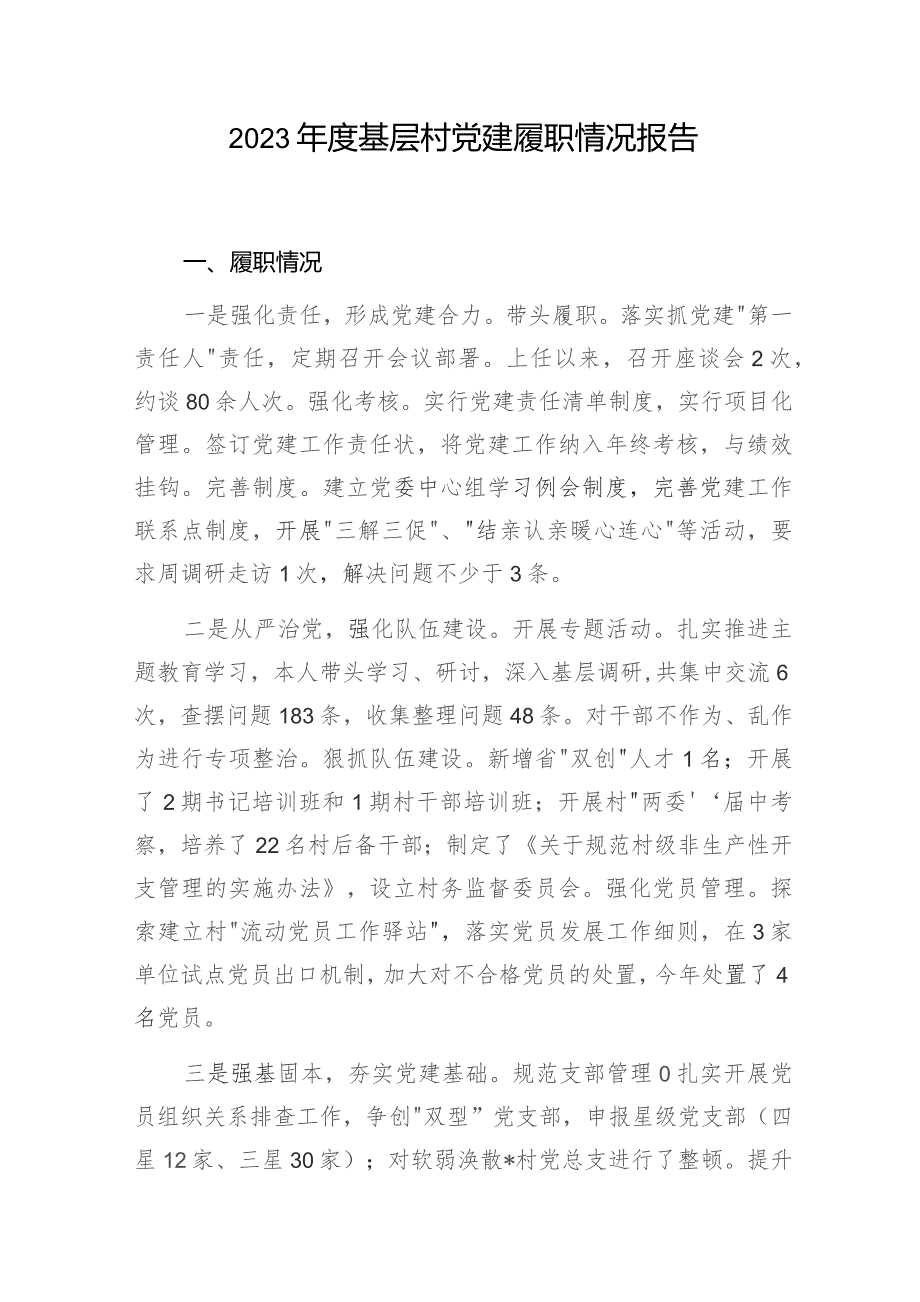 2023年度基层村党建履职情况报告
一、履职情况
一是强化责任，形成党建合力。带头履职。落实抓党建"第一
责任人"责任，定期召开会议部署。上任以来，召开座谈会2次，
约谈80余人次。强化考核。实行党建责任清单制度，实行项目化
管理。签订党建工作责任状，将党建工作纳入年终考核，与绩效
挂钩。完善制度。建立党委中心组学习例会制度，完善党建工作
联系点制度，开展"三解三促"、"结亲认亲暖心连心"等活动，要
求周调研走访1次，解决问题不少于3条。
二是从严治党，强化队伍建设。开展专题活动。扎实推进主
题教育学习，本人带头学习、研讨，深入基层调研,共集中交流6
次，查摆问题183条，收集整理问题48条。对干部不作为、乱作
为进行专项整治。狠抓队伍建设。新增省"双创"人才1名；开展
了2期书记培训班和1期村干部培训班；开展村"两委'‘届中考
察，培养了22名村后备干部；制定了《关于规范村级非生产性开
支管理的实施办法》，设立村务监督委员会。强化党员管理。探
索建立村"流动党员工作驿站"，落实党员发展工作细则，在3家
单位试点党员出口机制，加大对不合格党员的处置，今年处置了4
名党员。
三是强基固本，夯实党建基础。规范支部管理0扎实开展党
员组织关系排查工作，争创"双型”党支部，申报星级党支部（四
星12家、三星30家）；对软弱涣散*村党总支进行了整顿。提升